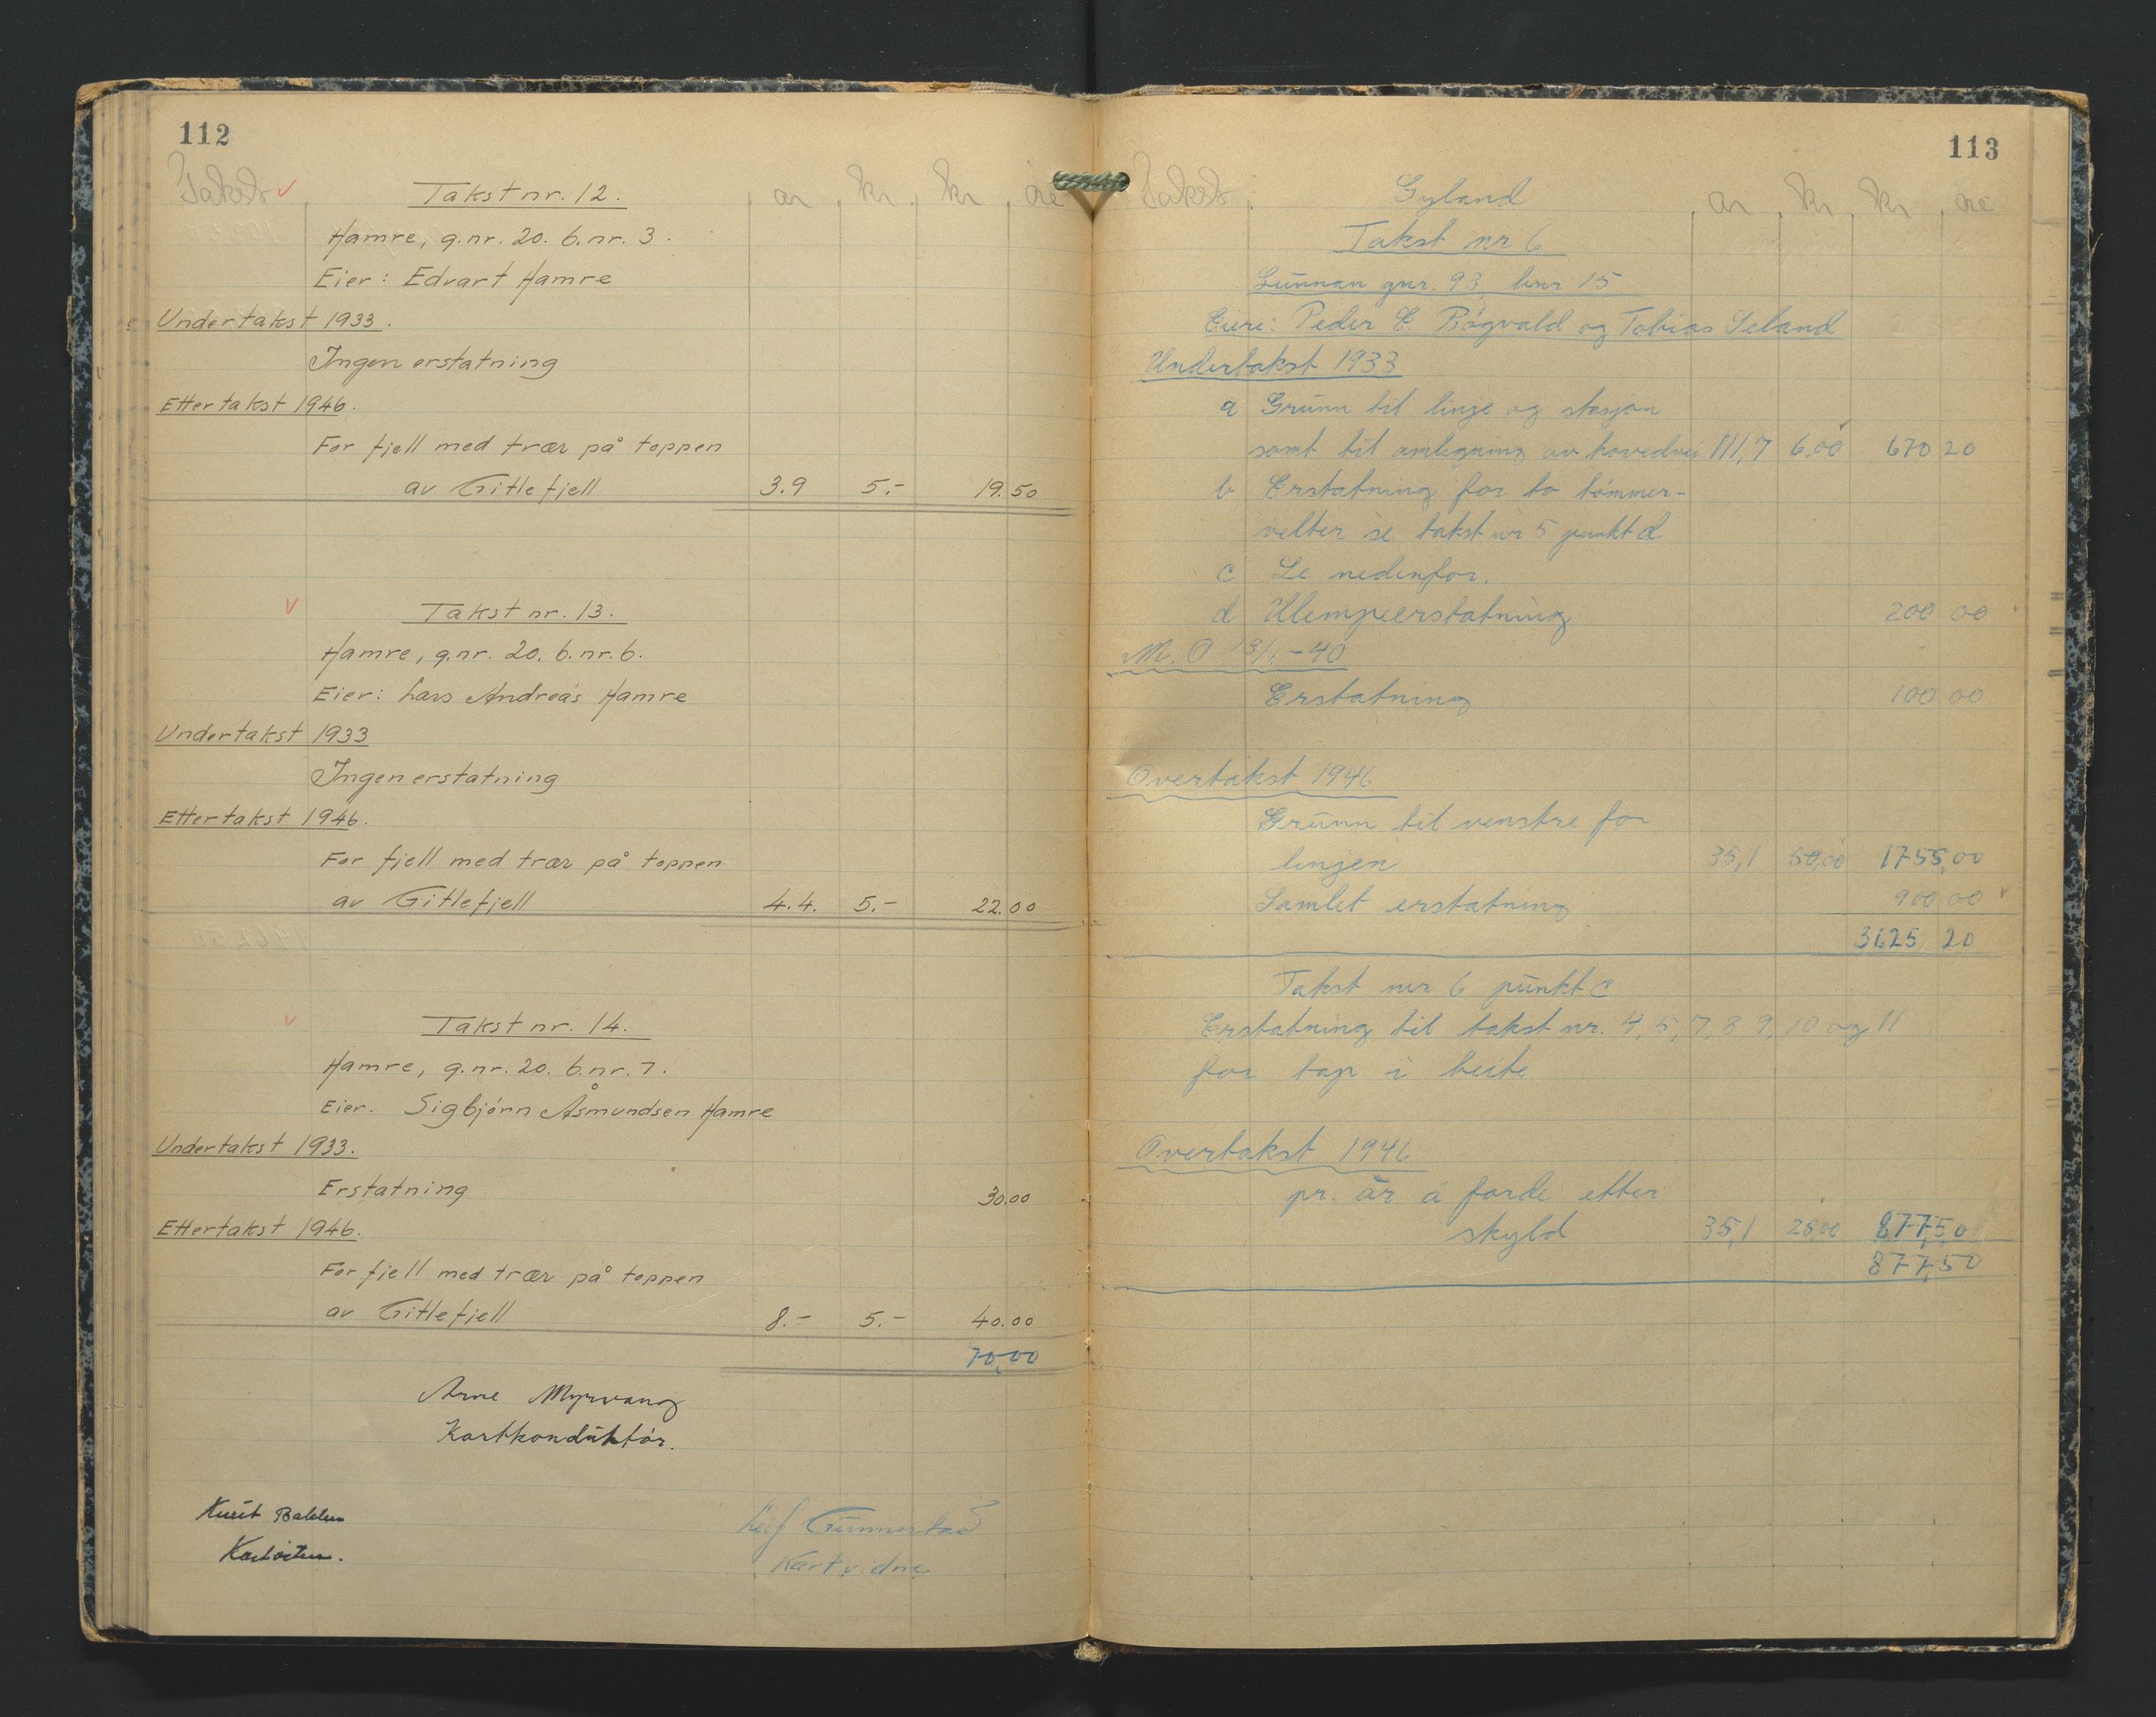 112
Takst
ar kr kr øre
Takst nr. 12.
Hamre, g.nr. 20. b.nr. 3.
Eier: Edvart Hamre
Undertakst 1933.
Ingen erstatning
Ettertakst 1946.
For fjell med trær på toppen
av Gitlefjell 3.9 5.- 19.50
Takst nr. 13.
Hamre, g.nr. 20. b.nr. 6.
Eier: Lars Andreas Hamre
Undertakst 1933
Ingen erstatning
Ettertakst 1946.
For fjell med trær på toppen
av Gitlefjell 4.4. 5.- 22.00
Takst nr. 14.
Hamre, g.nr. 20. b.nr. 7.
Eier. Sigbjørn Åsmundsen Hamre
Undertakst 1933.
Erstatning 30.00
Ettertakst 1946.
For fjell med trær på toppen
av Gitlefjell 8.- 5.- 40.00
70,00
Arne Myrvang
Kartkonduktør.
Leif Gunnestad
Kartvidne
113
Takst
ar kr kr øre
Gyland
Takst nr 6
Lunnan gnr. 93, bnr 15
Eiere: Peder E. Bøgvald og Tobias Seland
Undertakst 1933
a Grunn til linje og stasjon
samt til omlegning av hovedvei 111,7 6,00 670 20
b Erstatning for to tømmer-
velter se takst nr 5 punkt d
c Se nedenfor.
d Ulempeerstatning 200 00
M.O 13/1 - 40
Erstatning 100 00
Overtakst 1946
Grunn til venstre for
linjen 35,1 50,00 1755,00
Samlet erstatning 900 00
3625 20
Takst nr 6 punkt c
Erstatning til takst nr. 4, 5, 7, 8, 9, 10 og 11
for tap i beite
Overtakst 1946
pr. ar å forde etter
skyld 35,1 25,00 877,50
877,50